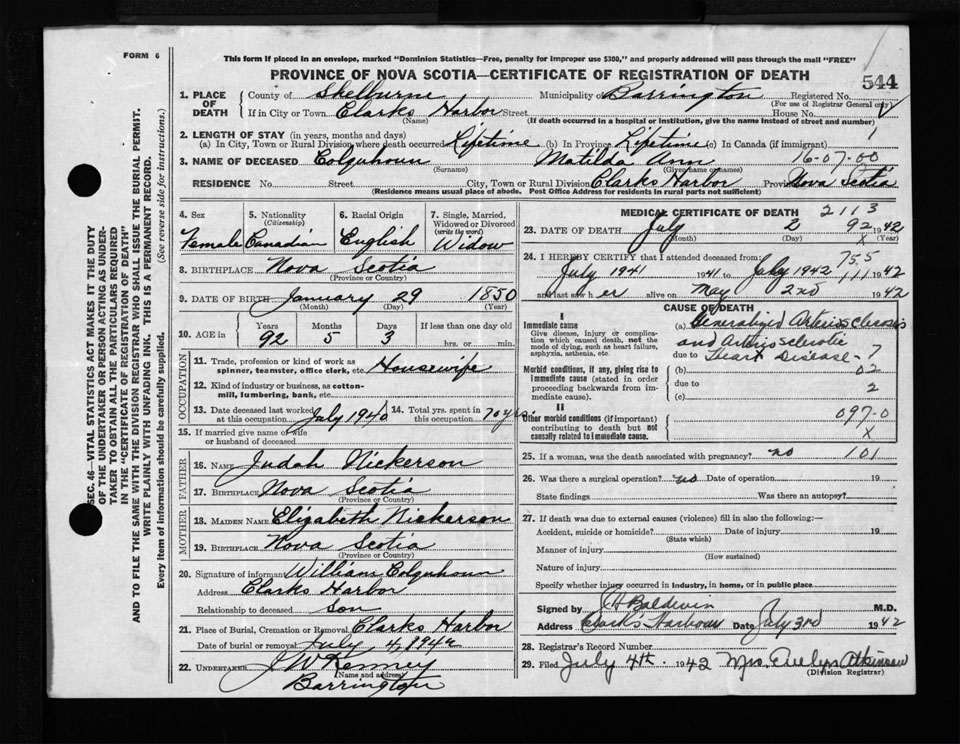 FORM 6
This form if placed in an envelope, marked "Dominion Statistics—Free, penalty for improper use $300," and properly addressed will pass through the mail "FREE"
PROVINCE OF NOVA SCOTIA—CERTIFICATE OF REGISTRATION OF DEATH
544
1. PLACE OF DEATH
County of Shelburne Municipality of Barrington Registered No.
(For use of Registrar General only)
If in City or Town Clarks Harbor Street House No.
(Name) (If death occurred in a hospital or institution, give the name instead of street and number)
2. LENGTH OF STAY (in years, months and days)
(a) In City, Town or Rural Division where death occurred Lifetime (b) In Province Lifetime (c) In Canada (if immigrant)
3. NAME OF DECEASED Colquhoun Matilda Ann 16-07-00
(Surname) (Given name or names)
RESIDENCE No. Street City, Town or Rural Division Clarks Harbor Province Nova Scotia
(Residence means usual place of abode. Post Office Address for residents in rural parts not sufficient)
4. Sex
Female
5. Nationality
(Citizenship)
Canadian
6. Racial Origin
English
7. Single, Married, Widowed or Divorced
(write the word)
Widow
8. BIRTHPLACE Nova Scotia
(Province or Country)
9. DATE OF BIRTH January 29 1850
(Month) (Day) (Year)
10. AGE in Years Months Days If less than one day
92 5 3 hrs. or min.
OCCUPATION
11. Trade, profession or kind of work as
spinner, teamster, office clerk, etc. Housewife
12. Kind of industry or business, as cotton-
mill, lumbering, bank, etc.
13. Date deceased last worked at this occupation July 1940
14. Total yrs. spent in this occupation 70 yrs
15. If married give name of wife
or husband of deceased.
FATHER
16. NAME Judah Nickerson
17. BIRTHPLACE Nova Scotia
(Province or Country)
MOTHER
18. MAIDEN NAME Elizabeth Nickerson
19. BIRTHPLACE Nova Scotia
(Province or Country)
20. Signature of informant William Colquhoun
Address Clarks Harbor
Relationship to deceased Son
21. Place of Burial, Cremation or Removal Clarks Harbor
Date of burial or removal July 4, 1942
22. UNDERTAKER J W Kenney
(Name and address)
Barrington
MEDICAL CERTIFICATE OF DEATH
2113
23. DATE OF DEATH July 2 92 1942
(Month) (Day) X (Year)
24. I HEREBY CERTIFY that I attended deceased from 755
July 1941 1941 to July 1942 111 1942
and last saw her alive on May 2nd 1942
CAUSE OF DEATH
I
Immediate cause
Give disease, injury or complication which caused death, not the mode of dying, such as heart failure, asphyxia, asthenia, etc.
(a) Generalized Arteriosclerosis
and Arteriosclerotic
due to Heart Disease - 7
Morbid conditions, if any, giving rise to immediate cause (stated in order proceeding backwards from immediate cause).
(b) 02
due to 2
(c)
II
Other morbid conditions (if important) contributing to death but not causally related to immediate cause.
097-0
X
25. If a woman, was the death associated with pregnancy? no 101
26. Was there a surgical operation? no Date of operation 19
State findings Was there an autopsy?
27. If death was due to external causes (violence) fill in also the following:—
Accident, suicide or homicide? Date of injury 19
(State which)
Manner of injury
(How sustained)
Nature of injury
Specify whether injury occurred in industry, in home, or in public place
Signed by H Baldwin M.D.
Address Clarks Harbour Date July 3rd 1942
28. Registrar's Record Number
29. Filed July 4th 1942 Mrs. Evelyn Atkinson
(Division Registrar)
SEC. 46—VITAL STATISTICS ACT MAKES IT THE DUTY
OF THE UNDERTAKER OR PERSON ACTING AS UNDER-
TAKER TO OBTAIN ALL THE PARTICULARS REQUIRED
IN THE "CERTIFICATE OF REGISTRATION OF DEATH"
AND TO FILE THE SAME WITH THE DIVISION REGISTRAR WHO SHALL ISSUE THE BURIAL PERMIT.
WRITE PLAINLY WITH UNFADING INK. THIS IS A PERMANENT RECORD.
Every item of information should be carefully supplied. (See reverse side for instructions.)